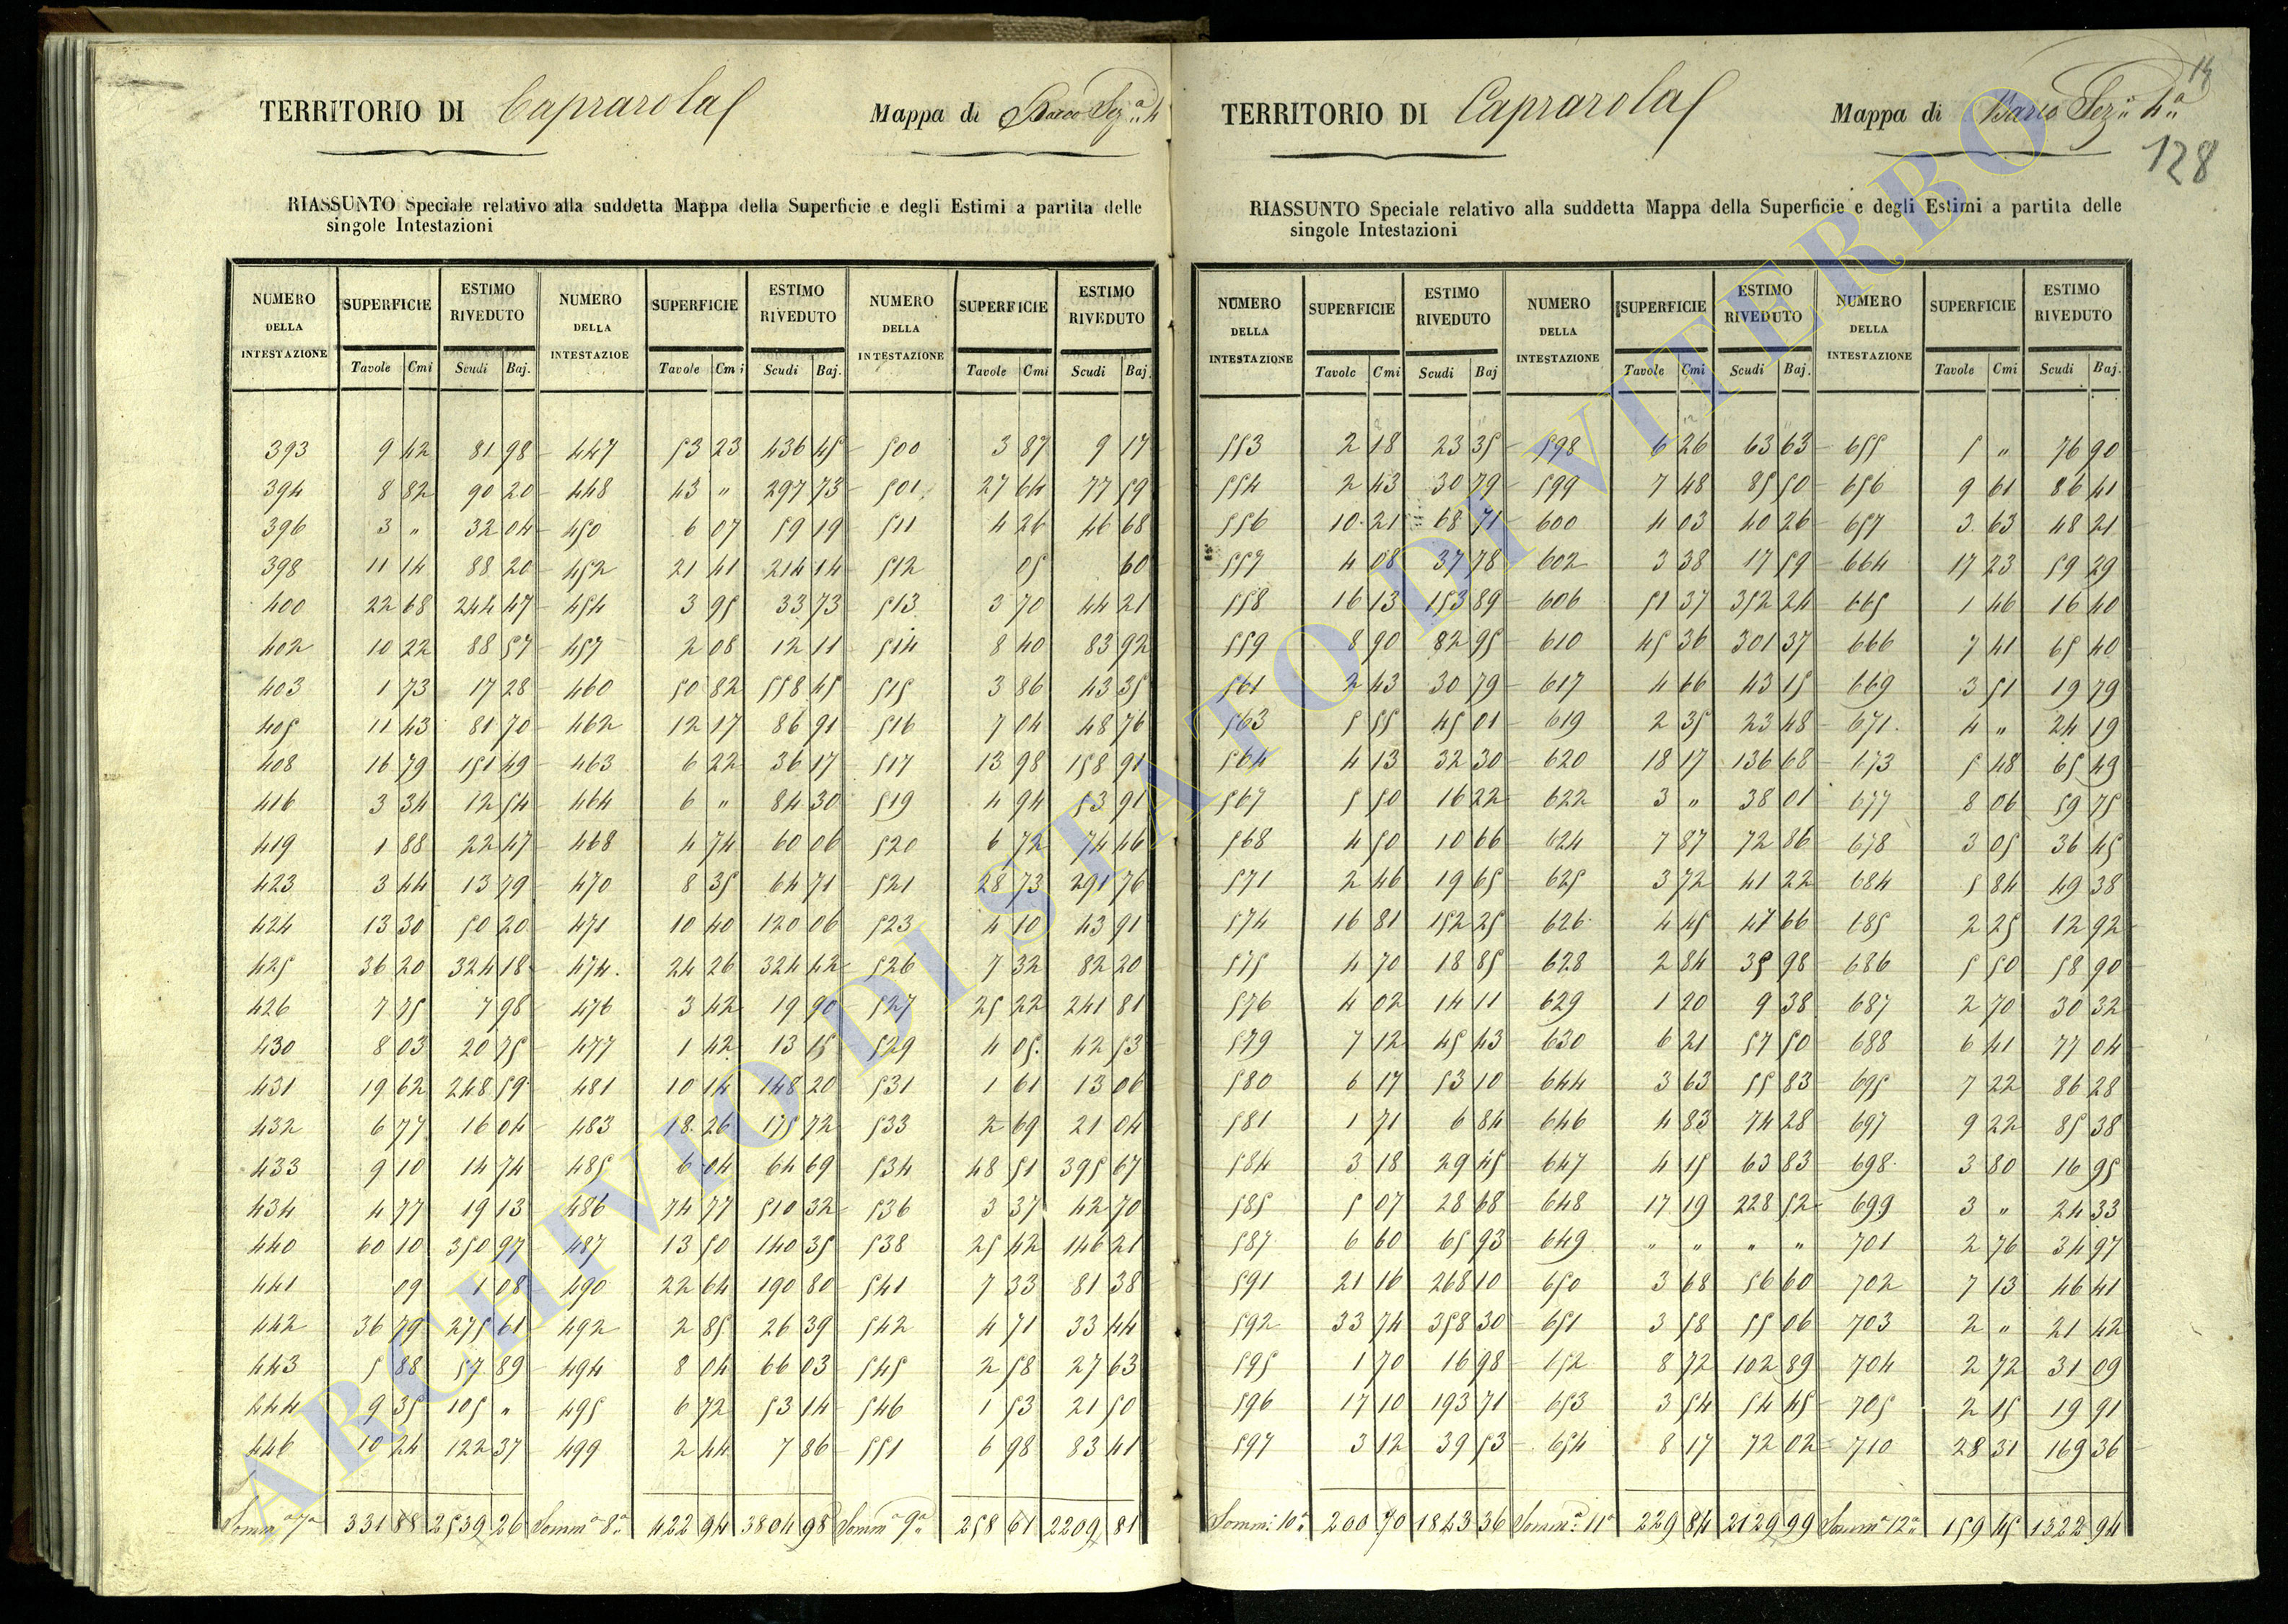 TERRITORIO DI Caprarola Mappa di Barco Sez.a 4
RIASSUNTO Speciale relativo alla suddetta Mappa della Superficie e degli Estimi a partita delle
singole Intestazioni
NUMERO DELLA INTESTAZIONE SUPERFICIE ESTIMO RIVEDUTO NUMERO DELLA INTESTAZIOE SUPERFICIE ESTIMO RIVEDUTO NUMERO DELLA INTESTAZIONE SUPERFICIE ESTIMO RIVEDUTO
Tavole Cmi Scudi Baj. Tavole Cmi Scudi Baj. Tavole Cmi Scudi Baj.
393 9 42 81 98 447 53 23 436 45 500 3 87 9 17
394 8 82 90 20 448 43 " 297 73 501 27 64 77 59
396 3 " 32 04 450 6 07 59 19 511 4 26 46 68
398 11 14 88 20 452 21 41 214 14 512 05 60
400 22 68 244 47 454 3 95 33 73 513 3 70 44 21
402 10 22 88 57 457 2 08 12 11 514 8 40 83 92
403 1 73 17 28 460 50 82 558 45 515 3 86 43 35
405 11 43 81 70 462 12 17 86 91 516 7 04 48 76
408 16 79 151 49 463 6 22 36 17 517 13 98 158 91
416 3 34 12 54 464 6 " 84 30 519 4 94 53 91
419 1 88 22 47 468 4 74 60 06 520 6 72 74 46
423 3 44 13 79 470 8 35 64 71 521 28 73 291 76
424 13 30 50 20 471 10 40 120 06 523 4 10 43 91
425 36 20 324 18 474 24 26 324 42 526 7 32 82 20
426 7 75 7 98 476 3 42 19 90 527 25 22 241 81
430 8 03 20 75 477 1 42 13 15 529 4 05 42 53
431 19 62 248 59 481 10 14 148 20 531 1 61 13 06
432 6 77 16 04 483 18 26 175 72 533 2 69 21 04
433 9 10 14 74 485 6 04 64 69 534 48 51 395 67
434 4 77 19 13 486 74 77 510 32 536 3 37 42 70
440 60 10 350 97 487 13 50 140 35 538 25 42 146 21
441 09 1 08 490 22 64 190 80 541 7 33 81 38
442 36 79 275 61 492 2 85 26 39 542 4 71 33 44
443 5 88 57 89 494 8 04 66 03 545 2 58 27 63
444 9 35 105 " 495 6 72 53 14 546 1 53 21 50
446 10 24 122 37 499 2 44 7 86 551 6 98 83 41
Somma 7a 331 88 2539 26 Somma 8a 422 94 3804 98 Somma 9a 258 61 2209 81
TERRITORIO DI Caprarola Mappa di Barco Sez.a 4a
128
RIASSUNTO Speciale relativo alla suddetta Mappa della Superficie e degli Estimi a partita delle
singole Intestazioni
NUMERO DELLA INTESTAZIONE SUPERFICIE ESTIMO RIVEDUTO NUMERO DELLA INTESTAZIONE SUPERFICIE ESTIMO RIVEDUTO NUMERO DELLA INTESTAZIONE SUPERFICIE ESTIMO RIVEDUTO
Tavole Cmi Scudi Baj Tavole Cmi Scudi Baj. Tavole Cmi Scudi Baj.
553 2 18 23 35 598 6 26 63 63 655 5 " 76 90
554 2 43 30 79 599 7 48 85 50 656 9 61 86 41
556 10 21 68 71 600 4 03 40 26 657 3 63 48 21
557 4 08 37 78 602 3 38 17 59 664 17 23 59 29
558 16 13 153 89 606 51 37 352 24 665 1 46 16 40
559 8 90 82 95 610 45 36 301 37 666 7 41 65 40
561 2 43 30 79 617 4 66 43 15 669 3 51 19 79
563 5 55 45 01 619 2 35 23 48 671 4 " 24 19
564 4 13 32 30 620 18 17 136 68 673 5 48 65 49
567 5 50 16 22 622 3 " 38 01 677 8 06 59 75
568 4 50 10 66 624 7 87 72 86 678 3 05 36 45
571 2 46 19 65 625 3 72 41 22 684 5 84 49 38
574 16 81 152 25 626 4 45 47 66 685 2 25 12 92
575 4 70 18 85 628 2 84 35 98 686 5 50 58 90
576 4 02 14 11 629 1 20 9 38 687 2 70 30 32
579 7 12 45 43 630 6 21 57 50 688 6 41 77 04
580 6 17 53 10 644 3 63 55 83 695 7 22 86 28
581 1 71 6 84 646 4 83 74 28 697 9 22 85 38
584 3 18 29 45 647 4 15 63 83 698 3 80 16 95
585 5 07 28 68 648 17 19 228 52 699 3 " 24 33
587 6 60 65 93 649 " " " " 701 2 76 34 97
591 21 16 268 10 650 3 68 56 60 702 7 13 46 41
592 33 74 358 30 651 3 58 55 06 703 2 " 21 42
595 1 70 16 98 652 8 72 102 89 704 2 72 31 09
596 17 10 193 71 653 3 54 54 45 705 2 15 19 91
597 3 12 39 53 654 8 17 72 02 710 28 31 169 36
Somma 10a 200 70 1843 36 Somma 11a 229 84 2129 99 Somma 12a 159 45 1322 94
ARCHIVIO DI STATO DI VITERBO